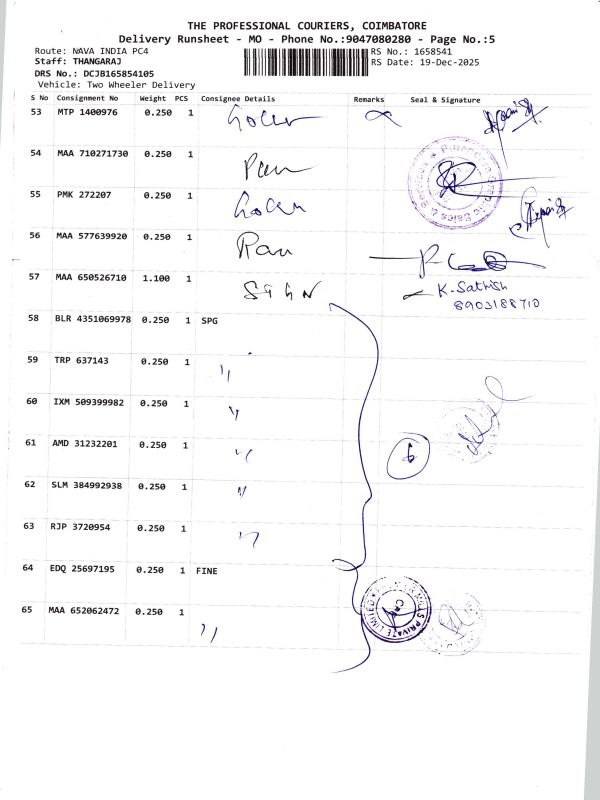 THE PROFESSIONAL COURIERS, COIMBATORE
Delivery Runsheet - MO - Phone No.:9047080280 - Page No.:5
Route: NAVA INDIA PC4 RS No.: 1658541
Staff: THANGARAJ RS Date: 19-Dec-2025
DRS No.: DCJB165854105
Vehicle: Two Wheeler Delivery
S No Consignment No Weight PCS Consignee Details Remarks Seal & Signature
53 MTP 1400976 0.250 1
54 MAA 710271730 0.250 1
55 PMK 272207 0.250 1
56 MAA 577639920 0.250 1
57 MAA 650526710 1.100 1 K. Sathish
8903188710
58 BLR 4351069978 0.250 1 SPG
59 TRP 637143 0.250 1 "
60 IXM 509399982 0.250 1 "
61 AMD 31232201 0.250 1 " 6
62 SLM 384992938 0.250 1 "
63 RJP 3720954 0.250 1 "
64 EDQ 25697195 0.250 1 FINE
65 MAA 652062472 0.250 1 "
PRIVATE LIMITED